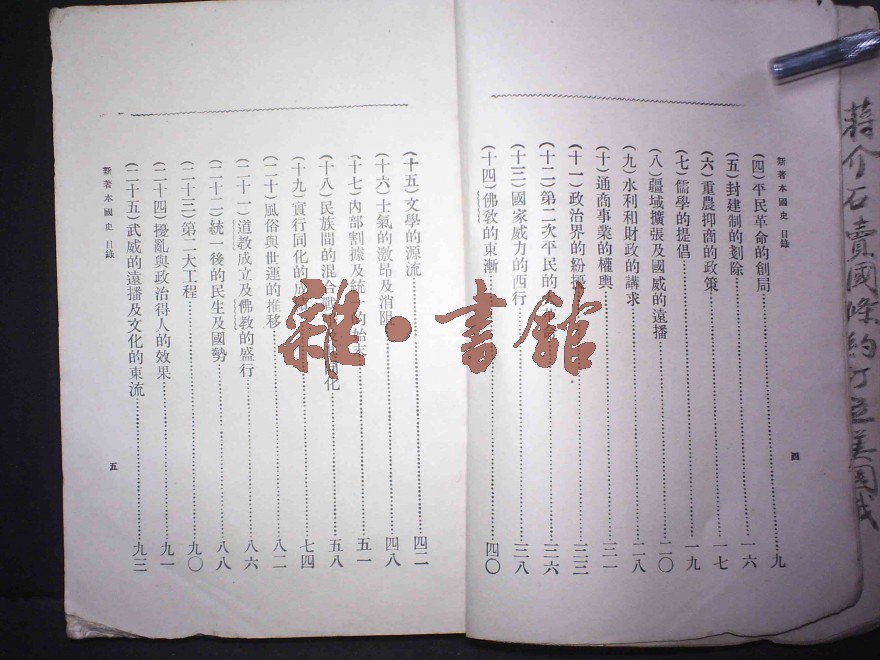 新著本國史 目錄
(四)平民革命的創局……九
(五)封建制的剗除……一六
(六)重農抑商的政策……一七
(七)儒學的提倡……一九
(八)疆域擴張及國威的遠播……二〇
(九)水利和財政的講求……二八
(十)通商事業的權輿……三一
(十一)政治界的紛擾……三三
(十二)第二次平民的……三六
(十三)國家威力的西行……三八
(十四)佛敎的東漸……四〇
四
(十五)文學的源流……四二
(十六)士氣的激昂及消阻……四八
(十七)內部割據及統一的始末……五一
(十八)民族間的混合戰……同化……五八
(十九)實行同化的成……七四
(二十)風俗與世運的推移……八二
(二十一)道教成立及佛敎的盛行……八六
(二十二)統一後的民生及國勢……八八
(二十三)第二大工程……九〇
(二十四)擾亂與政治得人的效果……九一
(二十五)武威的遠播及文化的東流……九三
新著本國史 目錄
五
蔣介石賣國條約訂立美國
雜·書館